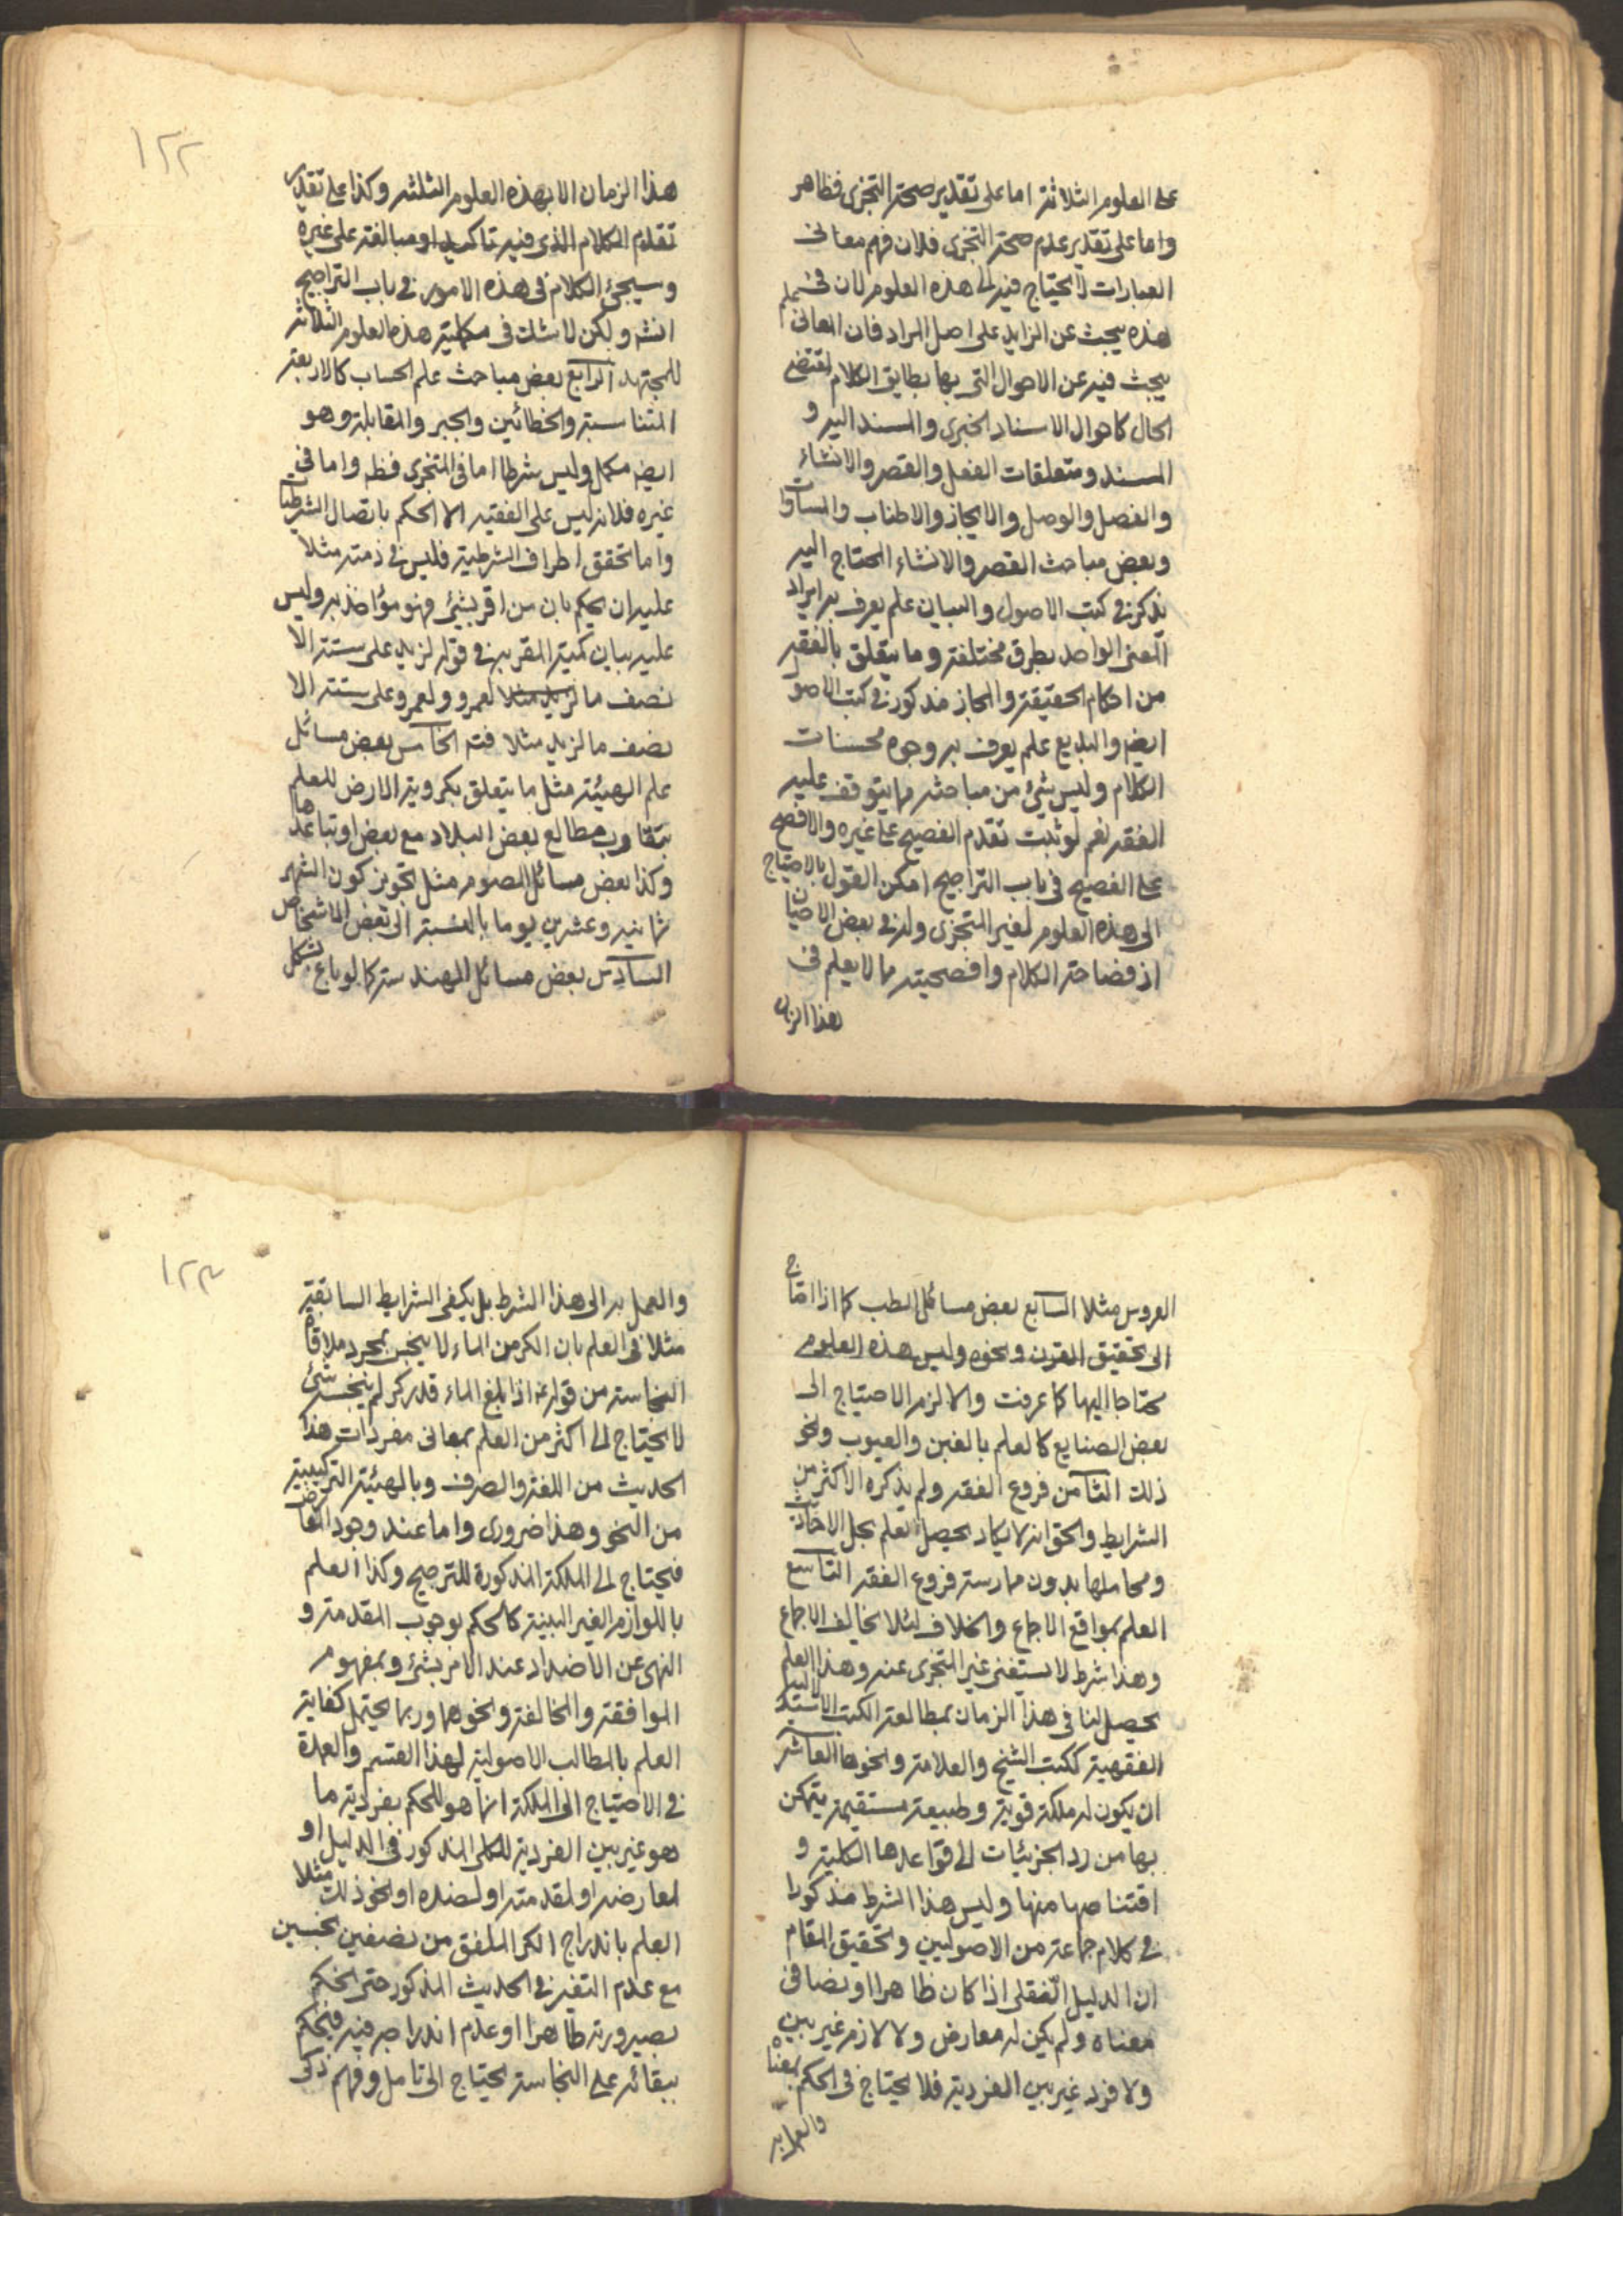 على العلوم الثلاثة اما على تقدير صحة التجزى فظاهر
واما على تقدير عدم صحة التجزى فلان فهم معانى
العبارات لا يحتاج فيه الى هذه العلوم لان فى
هذه يبحث عن الزايد على اصل المراد فان المعانى
يبحث فيه عن الاحوال التى بها يطابق الكلام لمقتضى
الحال كاحوال الاسناد الخبرى والمسند اليه و
المسند ومتعلقات الفعل والقصر والانشاء
والفصل والوصل والايجاز والاطناب والمساواة
وبعض مباحث القصر والانشاء المحتاج اليه
يذكر فى كتب الاصول والبيان علم يعرف به ايراد
المعنى الواحد بطرق مختلفة وما يتعلق بالفقه
من احكام الحقيقة والمجاز مذكور فى كتب الاصول
ايضا والبديع علم يعرف به وجوه محسنات
الكلام وليس شئ من مباحثه مما يتوقف عليه
الفقه نعم لو ثبت تقدم الفصيح على غيره والافصح
على الفصيح فى باب التراجيح امكن القول بالاحتياج
الى هذه العلوم لغير المتجزى وله فى بعض الاحيان
اذ فصاحة الكلام وافصحيته مما لا يعلم فى
هذا الزمان
١٢٢
هذا الزمان الا بهذه العلوم الثلثة وكذا على تقدير
تقدم الكلام الذى فيه تاكيد او مبالغة على غيره
وسيجئ الكلام فى هذه الامور فى باب التراجيح
انشه ولكن لا شك فى مكملية هذه العلوم الثلاثة
للمجتهد الرابع بعض مباحث علم الحساب كالاربعة
المتناسبة والخطائين والجبر والمقابلة وهو
ايضا مكمل وليس شرطا اما فى المتجزى فظه واما فى
غيره فلانه ليس على الفقيه الا الحكم باتصال الشرطيات
واما تحقق اطراف الشرطية فليس فى ذمته مثلا
عليه ان يحكم بان من اقر بشئ فهو مؤاخذ به وليس
عليه بيان كمية المقر به فى قوله لزيد على ستة الا
نصف ما لعمرو ولعمرو على ستة الا
نصف ما لزيد مثلا فتم الخامس بعض مسائل
علم الهيئة مثل ما يتعلق بكروية الارض للعلم
بتقارب مطالع بعض البلاد مع بعض او تباعدها
وكذا بعض مسائل الصوم مثل تجويز كون الشهر
ثمانية وعشرين يوما بالنسبة الى بعض الاشخاص
السادس بعض مسائل الهندسة كما لو باع بشكل
العروس مثلا السابع بعض مسائل الطب كما اذا احتاج
الى تحقيق القرن ونحوه وليس هذه العلوم
محتاجا اليها كما عرفت والا لزم الاحتياج الى
بعض الصنايع كالعلم بالغبن والعيوب ونحو
ذلك الثامن فروع الفقه ولم يذكره الاكثر من
الشرايط والحق انه لا يكاد يحصل العلم بحل الاحاديث
ومحاملها بدون ممارسة فروع الفقه التاسع
العلم بمواقع الاجماع والخلاف لئلا يخالف الاجماع
وهذا شرط لا يستغنى غير المتجزى عنه وهذا العلم
يحصل لنا فى هذا الزمان بمطالعة الكتب الاستدلالية
الفقهية ككتب الشيخ والعلامة ونحوها العاشر
ان يكون له ملكة قوية وطبيعة مستقيمة يتمكن
بها من رد الجزئيات الى قواعدها الكلية و
اقتناصها منها وليس هذا الشرط مذكورا
فى كلام جماعة من الاصوليين وتحقيق المقام
ان الدليل النقلى اذا كان ظاهرا او نصا فى
معناه ولم يكن له معارض ولا لازم غير بين
ولا فرد غير بين الفردية فلا يحتاج فى الحكم بمعناه
والعمل به
١٢٣
والعمل به الى هذا الشرط بل يكفى الشرايط السابقة
مثلا فى العلم بان الكر من الماء لا ينجس بمجرد ملاقاة
النجاسة من قوله اذا بلغ الماء قدر كر لم ينجسه شئ
لا يحتاج الى اكثر من العلم بمعانى مفردات هذا
الحديث من اللغة والصرف وبالهيئة التركيبية
من النحو وهذا ضرورى واما عند وجود المعارض
فيحتاج الى الملكة المذكورة للترجيح وكذا العلم
باللوازم الغير البينة كالحكم بوجوب المقدمة و
النهى عن الاضداد عند الامر بشئ وبمفهوم
الموافقة والمخالفة ونحوهما وربما يحتمل كفاية
العلم بالمطالب الاصولية لهذا القسم والعمدة
فى الاحتياج الى الملكة انما هو للحكم بفردية ما
هو غير بين الفردية للكلى المذكور فى الدليل او
لمعارضه او لمقدمته او لضده او نحو ذلك مثلا
العلم باندراج الكر الملفق من نصفين نجسين
مع عدم التغير فى الحديث المذكور حتى يحكم
بصيرورته طاهرا او عدم اندراجه فيه فيحكم
ببقائه على النجاسة يحتاج الى تامل وفهم ذكى